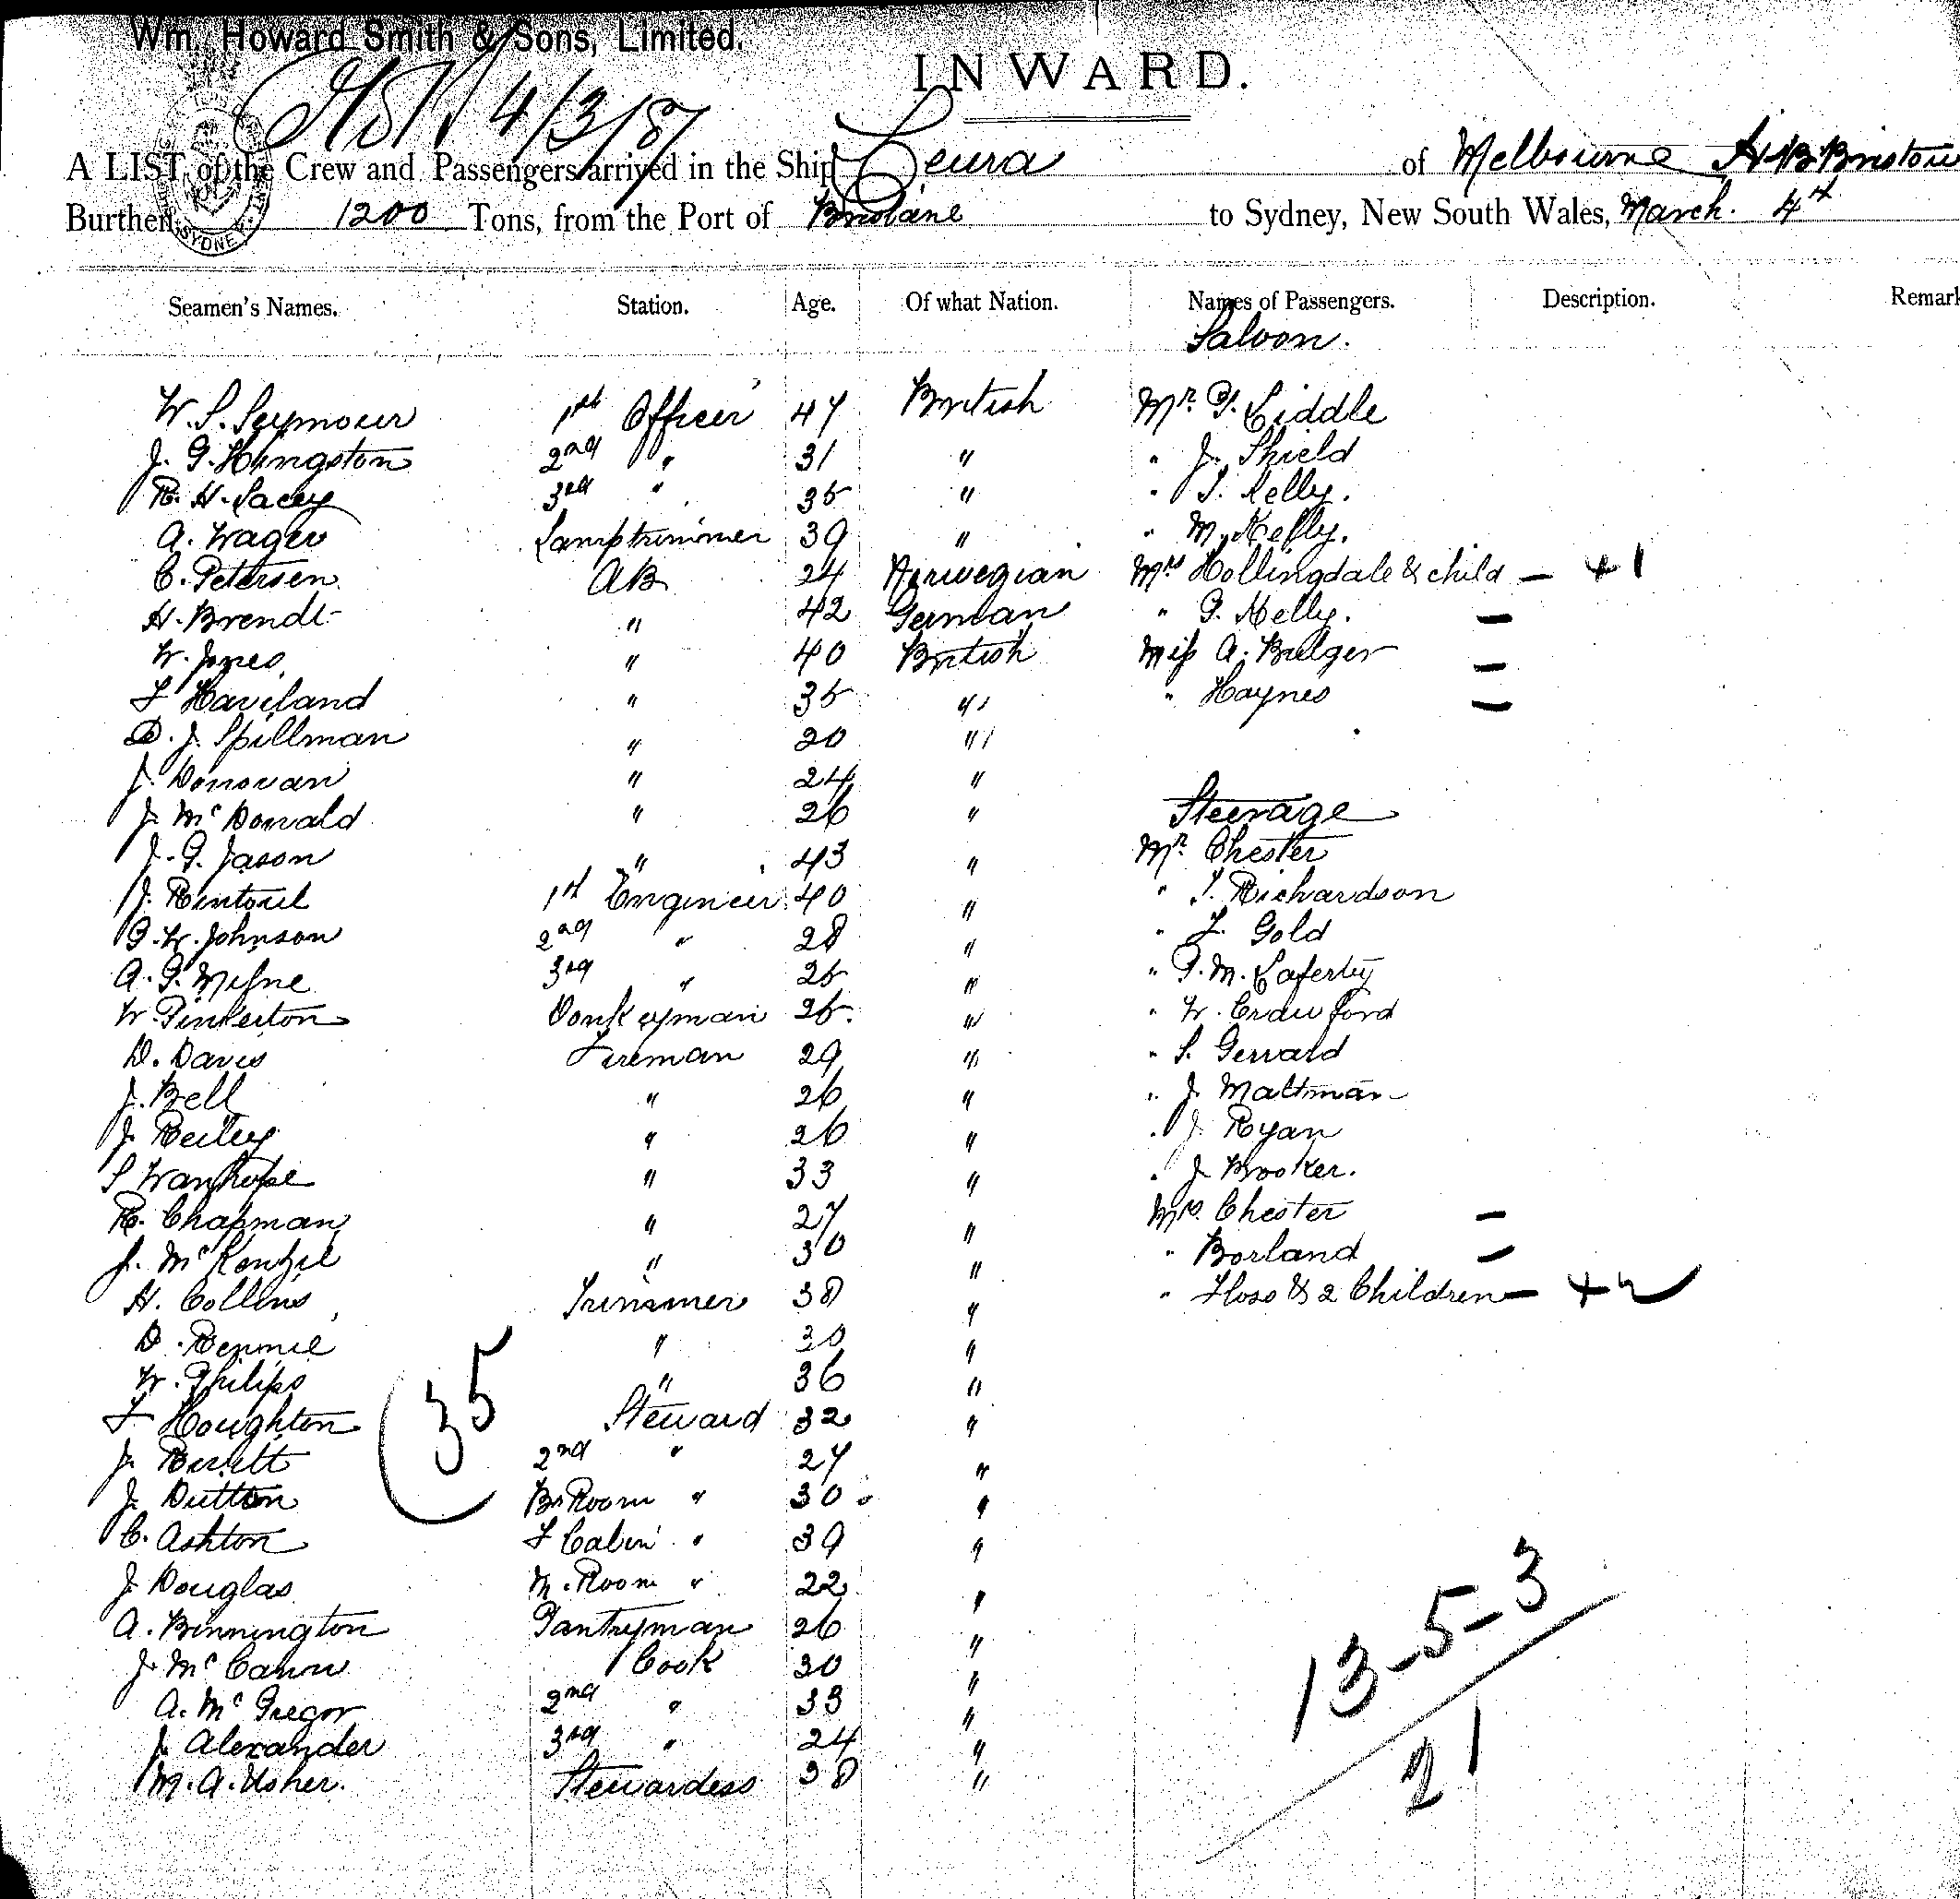 Wm. Howard Smith & Sons, Limited.
INWARD.
4/3/87
A LIST of the Crew and Passengers arrived in the Ship Leura of Melbourne H B Bristow
Burthen 1200 Tons, from the Port of Brisbane to Sydney, New South Wales, March. 4th
Seamen's Names. Station. Age. Of what Nation. Names of Passengers. Description. Remark
Saloon.
W. S. Seymour 1st Officer 47 British Mr. G. Liddle
J. G. Hingston 2nd " 31 " " J. Shield
R. H. Lacey 3rd " 35 " " T. Kelly.
A. Wager Lamptrimmer 39 " " M. Kelly.
C. Petersen AB 24 Norwegian Mrs Hollingdale & child — + 1
H. Brendt " 42 German " G. Kelly. —
W. Jones " 40 British Miss A. Bulger —
F Haviland " 35 " " Haynes —
D. J. Spillman " 20 "
J. Donovan " 24 "
J. McDonald " 26 " Steerage
J. G. Jason " 43 " Mr. Chester
J. Rintoul 1st Engineer 40 " " T. Richardson
G. W. Johnson 2nd " 28 " " F. Gold
A. G. Milne 3rd " 25 " " P. M. Laferty
W. Pinkerton Donkeyman 25 " " W. Crawford
D. Davis Fireman 29 " " S. Gerrard
J. Bell " 26 " " J. Maltman
J. Reiley " 26 " " J Ryan
S Wanhope " 33 " " J Brooker.
R. Chapman " 27 " Mrs. Chester —
J. McKenzie " 30 " " Borland —
H. Collins Trimmer 38 " " Floss & 2 Children — + 2
D. Rennie " 30 "
W. Philips " 36 "
F Houghton Steward 32 "
35
J. 2nd " 27 "
J. Dutton Br Room " 30 "
C. Ashton F Cabin " 39 "
J Douglas M. Room " 22 "
A. Binnington Pantryman 26 "
J. McCann Cook 30 "
A. McGregor 2nd " 33 "
J. Alexander 3rd " 24 "
M. A. Usher. Stewardess 38 "
13-5-3
21